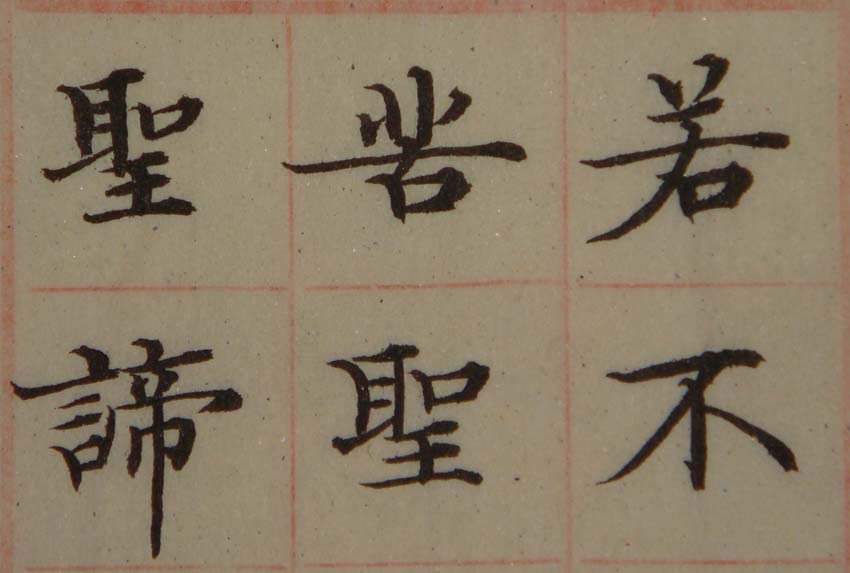 若不
苦聖
聖諦